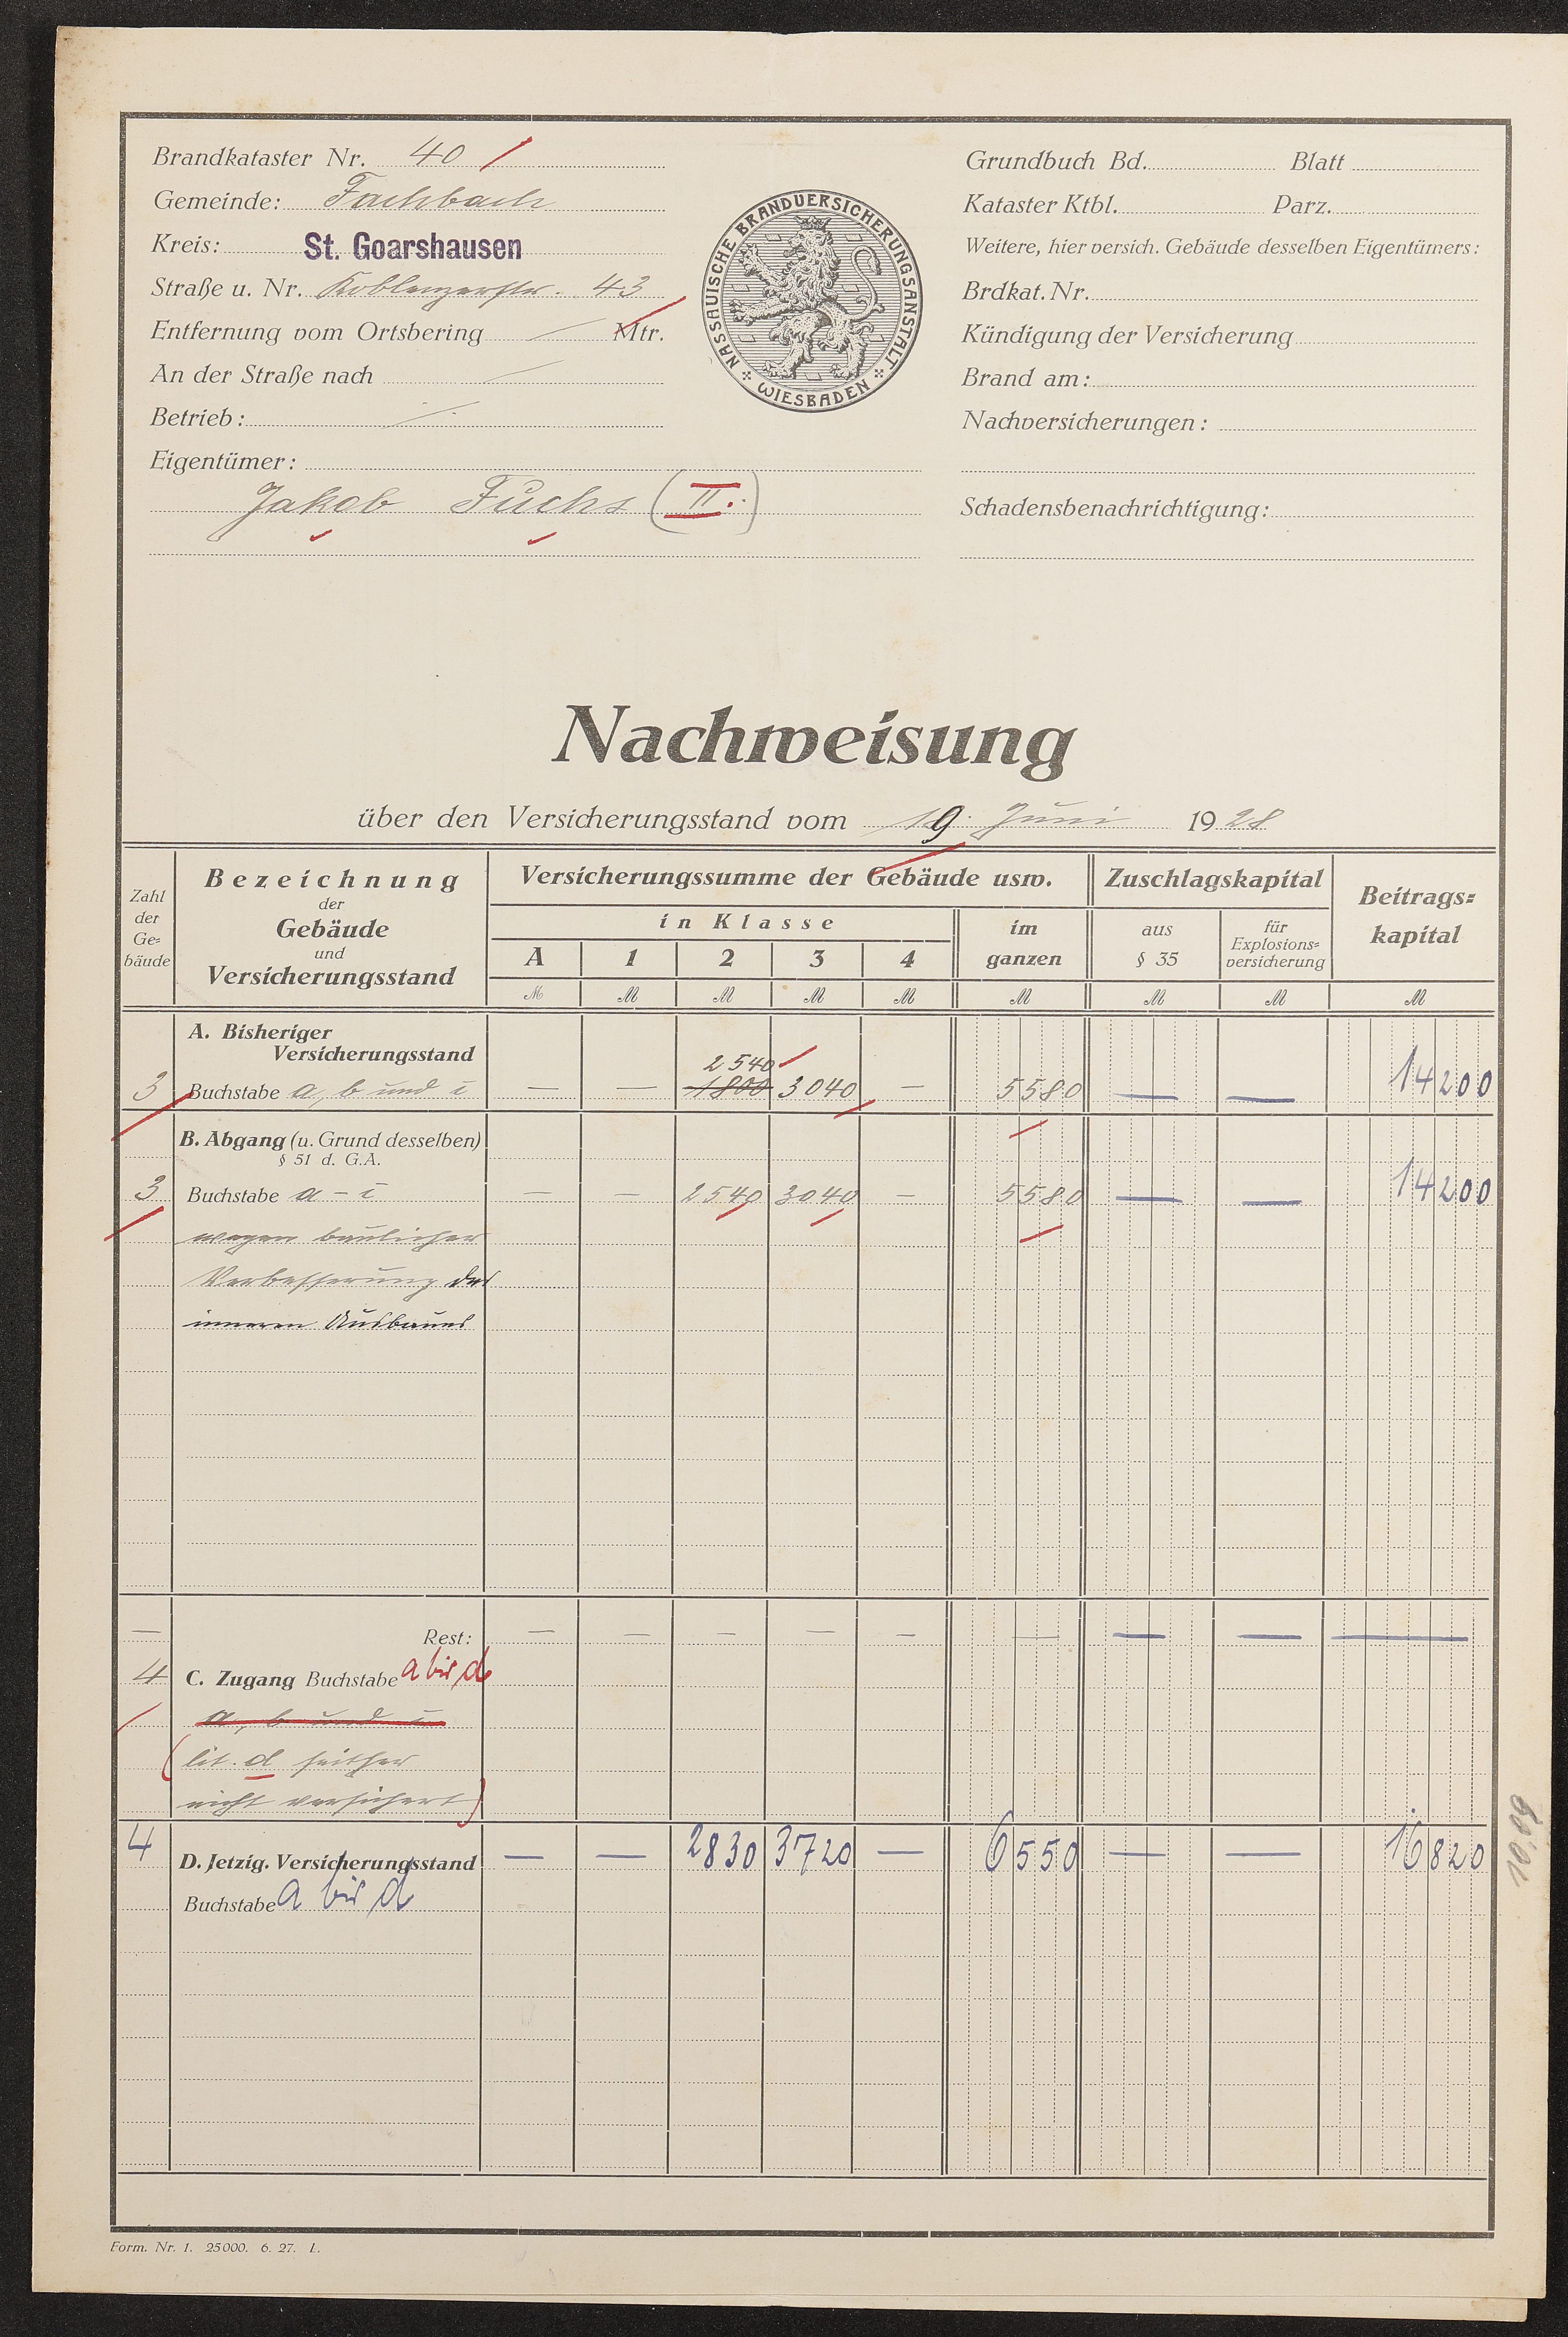 Brandkataster Nr. 40
Gemeinde: Fachbach
Kreis: St. Goarshausen
Straße u. Nr. Koblenzerstr. 43
Entfernung vom Ortsbering — Mtr.
An der Straße nach —
Betrieb: ·/·
Eigentümer:
Jakob Fuchs (II.)
NASSAUISCHE BRANDVERSICHERUNGSANSTALT
WIESBADEN
Grundbuch Bd. Blatt
Kataster Ktbl. Parz.
Weitere, hier versich. Gebäude desselben Eigentümers:
Brdkat. Nr.
Kündigung der Versicherung
Brand am:
Nachversicherungen:
Schadensbenachrichtigung:
Nachweisung
über den Versicherungsstand vom 19. Juni 1928
Zahl der Ge-bäude
Bezeichnung der Gebäude und Versicherungsstand
Versicherungssumme der Gebäude usw.
in Klasse
A 1 2 3 4
im ganzen
Zuschlagskapital
aus § 35
für Explosions-versicherung
Beitrags-kapital
M M M M M M M M M
A. Bisheriger
Versicherungsstand
2540
3 Buchstabe a, b und c — — 1800 3040 — 5580 — — 14200
B. Abgang (u. Grund desselben)
§ 51 d. G.A.
3 Buchstabe a - c — — 2540 3040 — 5580 — — 14200
wegen baulicher
Verbesserung des
inneren Ausbaues
— Rest: — — — — — — — — —
4 C. Zugang Buchstabe a bis d
a, b und c
(lit. d seither
nicht versichert)
4 D. Jetzig. Versicherungsstand — — 2830 3720 — 6550 — — 16820
Buchstabe a bis d
Form. Nr. 1. 25000. 6. 27. L.